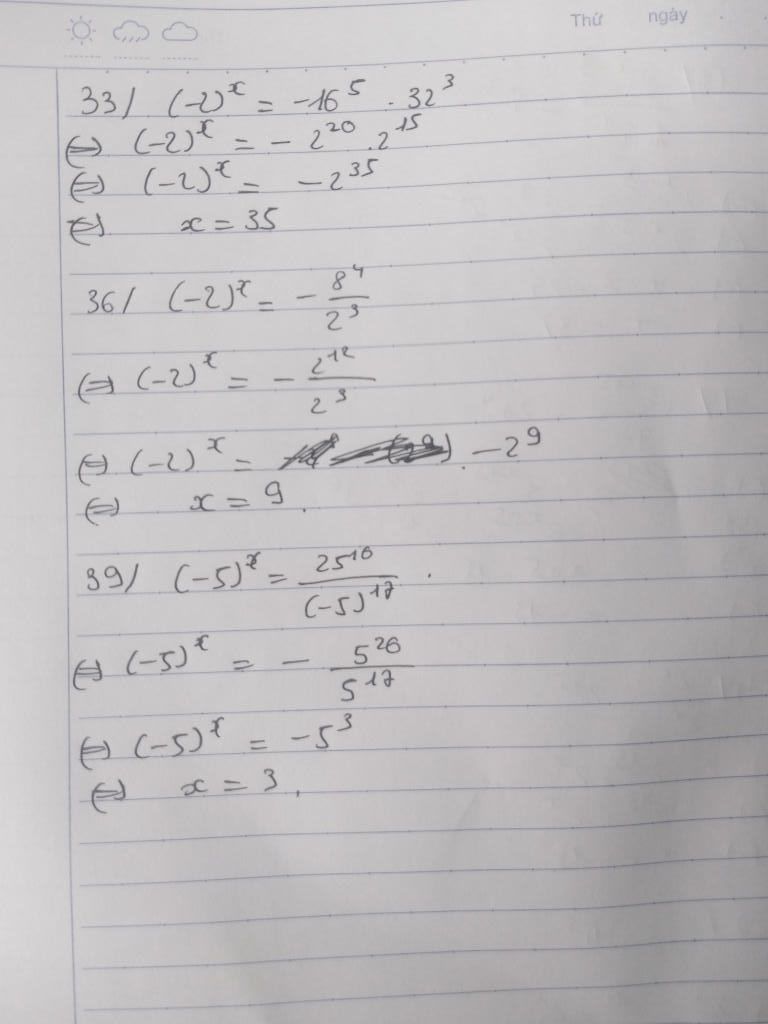 Thứ ngày
33/ (-2)^x = -16^5 . 32^3
(=) (-2)^x = - 2^20 . 2^15
(=) (-2)^x = -2^35
(=) x = 35
36/ (-2)^x = - 8^4/2^3
(=) (-2)^x = - 2^12/2^3
(=) (-2)^x = -2^9
(=) x = 9.
39/ (-5)^x = 25^10/(-5)^17.
(=) (-5)^x = - 5^20/5^17
(=) (-5)^x = -5^3
(=) x = 3.